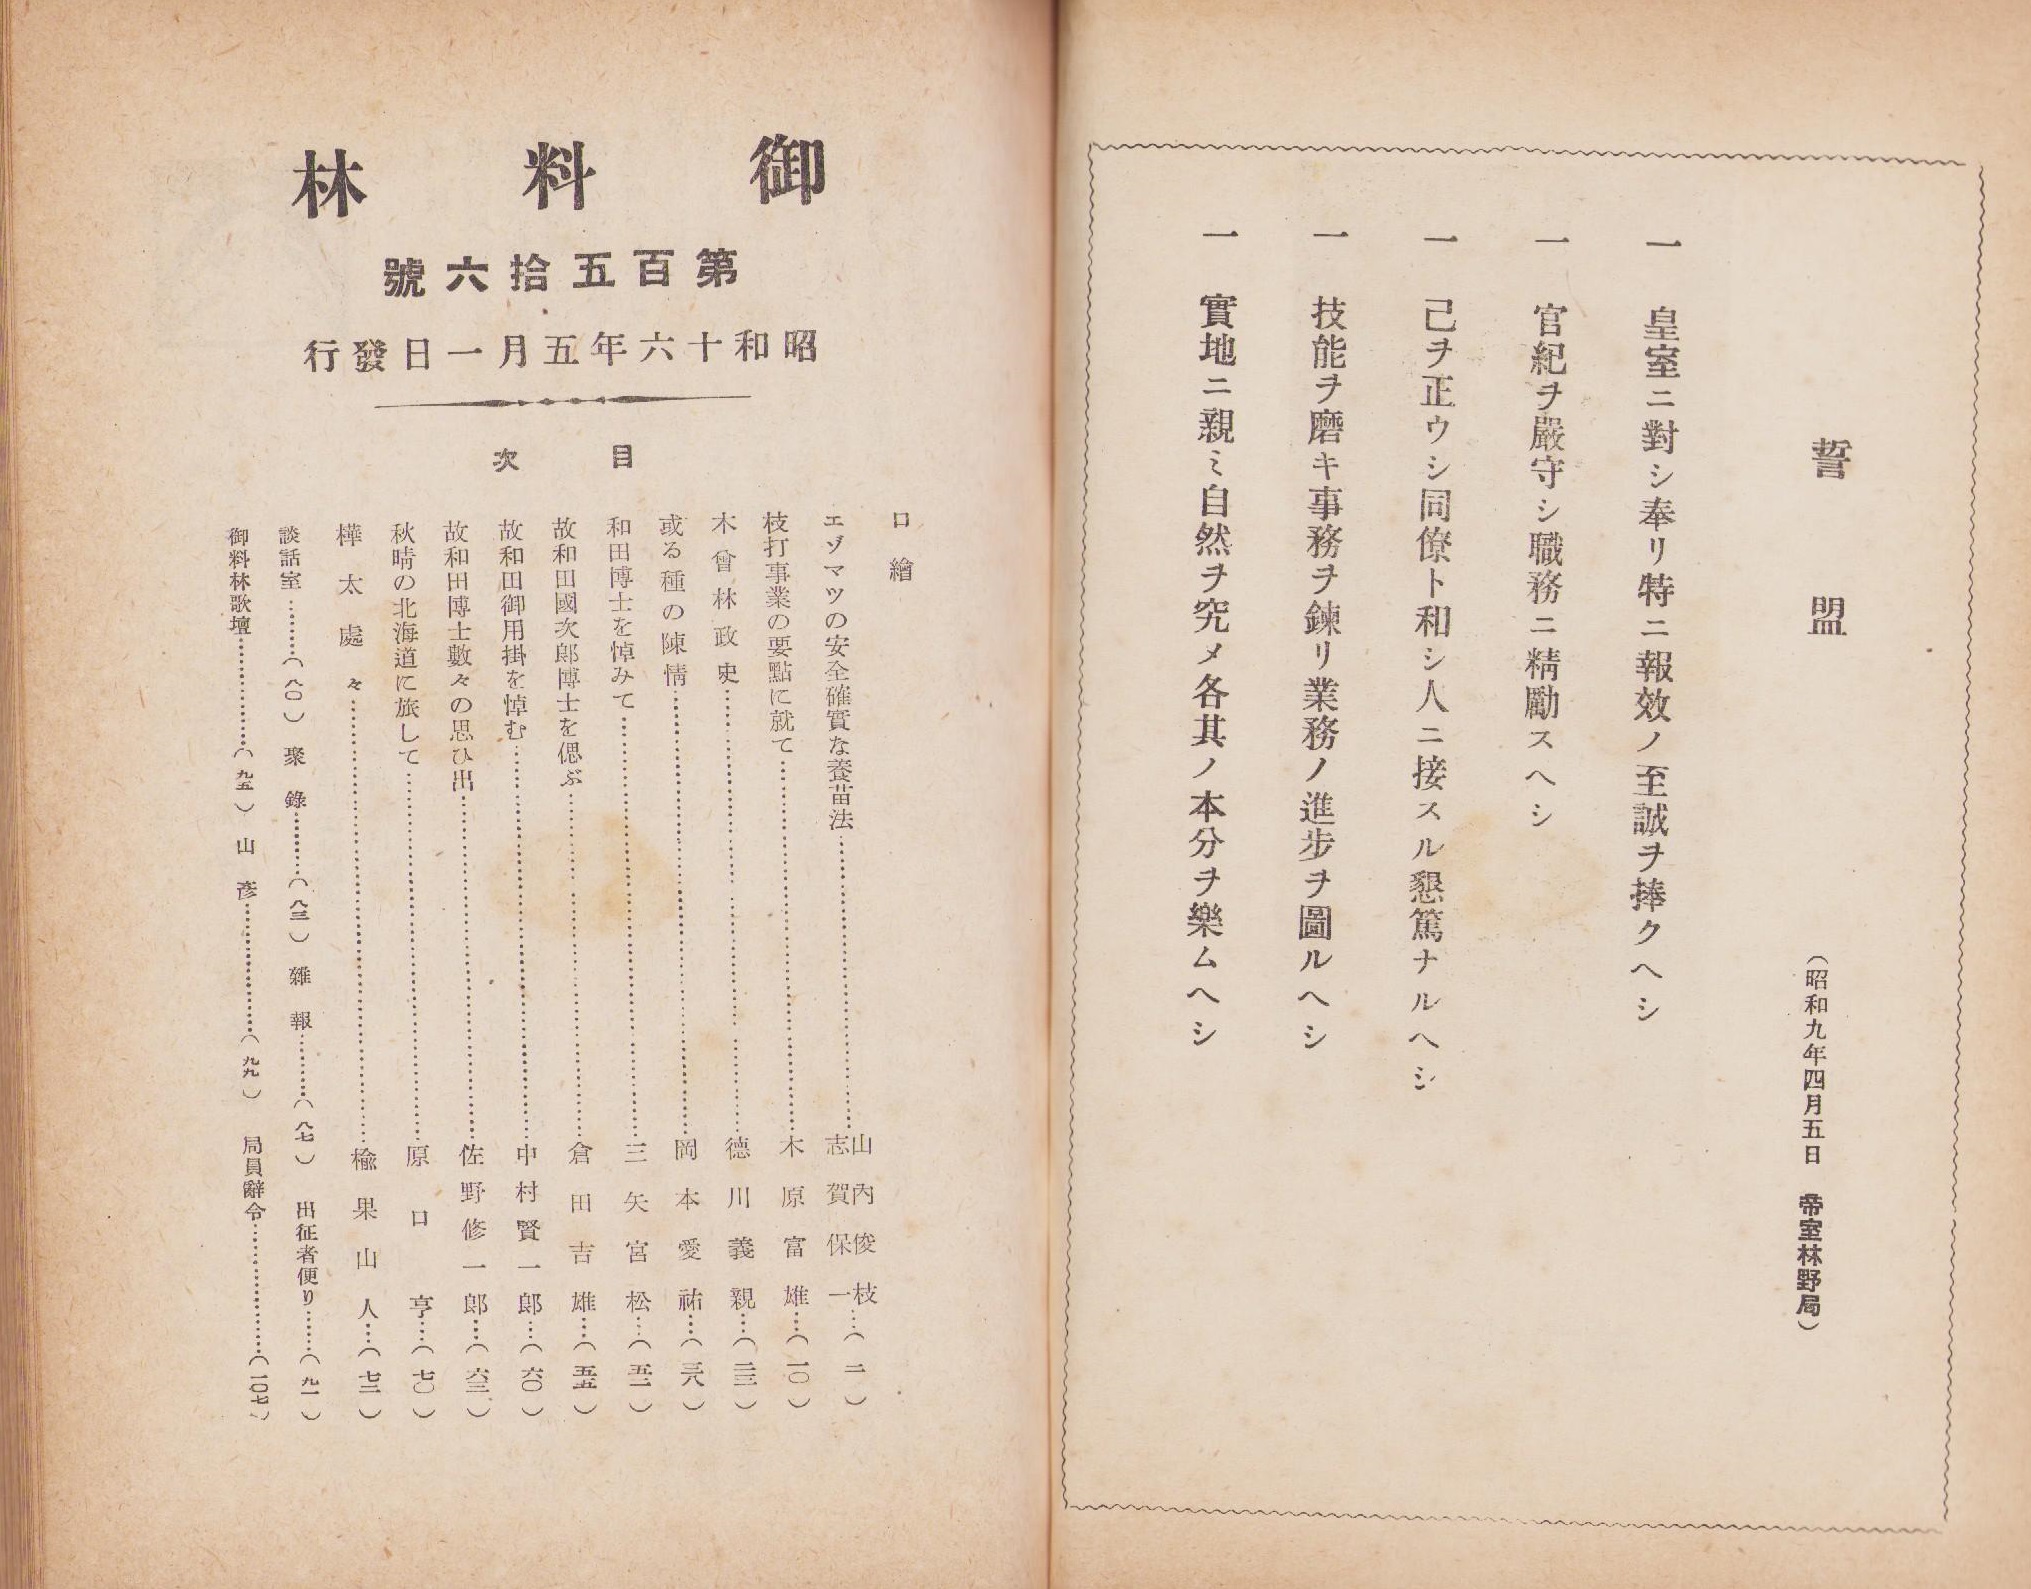 誓盟
（昭和九年四月五日　帝室林野局）
一　皇室ニ對シ奉リ特ニ報效ノ至誠ヲ捧クヘシ
一　官紀ヲ嚴守シ職務ニ精勵スヘシ
一　己ヲ正ウシ同僚ト和シ人ニ接スル懇篤ナルヘシ
一　技能ヲ磨キ事務ヲ鍊リ業務ノ進步ヲ圖ルヘシ
一　實地ニ親ミ自然ヲ究メ各其ノ本分ヲ樂ムヘシ
御料林
第百五拾六號
昭和十六年五月一日發行
目次
口繪
エゾマツの安全確實な養苗法……山內俊枝 志賀保一…（二）
枝打事業の要點に就て……木原富雄…（一〇）
木曾林政史……德川義親…（二三）
或る種の陳情……岡本愛祐…（三八）
和田博士を悼みて……三矢宮松…（五二）
故和田國次郎博士を偲ぶ……倉田吉雄…（五五）
故和田御用掛を悼む……中村賢一郎…（六〇）
故和田博士數々の思ひ出……佐野修一郎…（六三）
秋晴の北海道に旅して……原口亨…（七〇）
樺太處々……楡果山人…（七二）
談話室……（八〇）聚錄……（八三）雜報……（八七）出征者便り……（九一）
御料林歌壇……（九五）山彥……（九九）局員辭令……（一〇七）